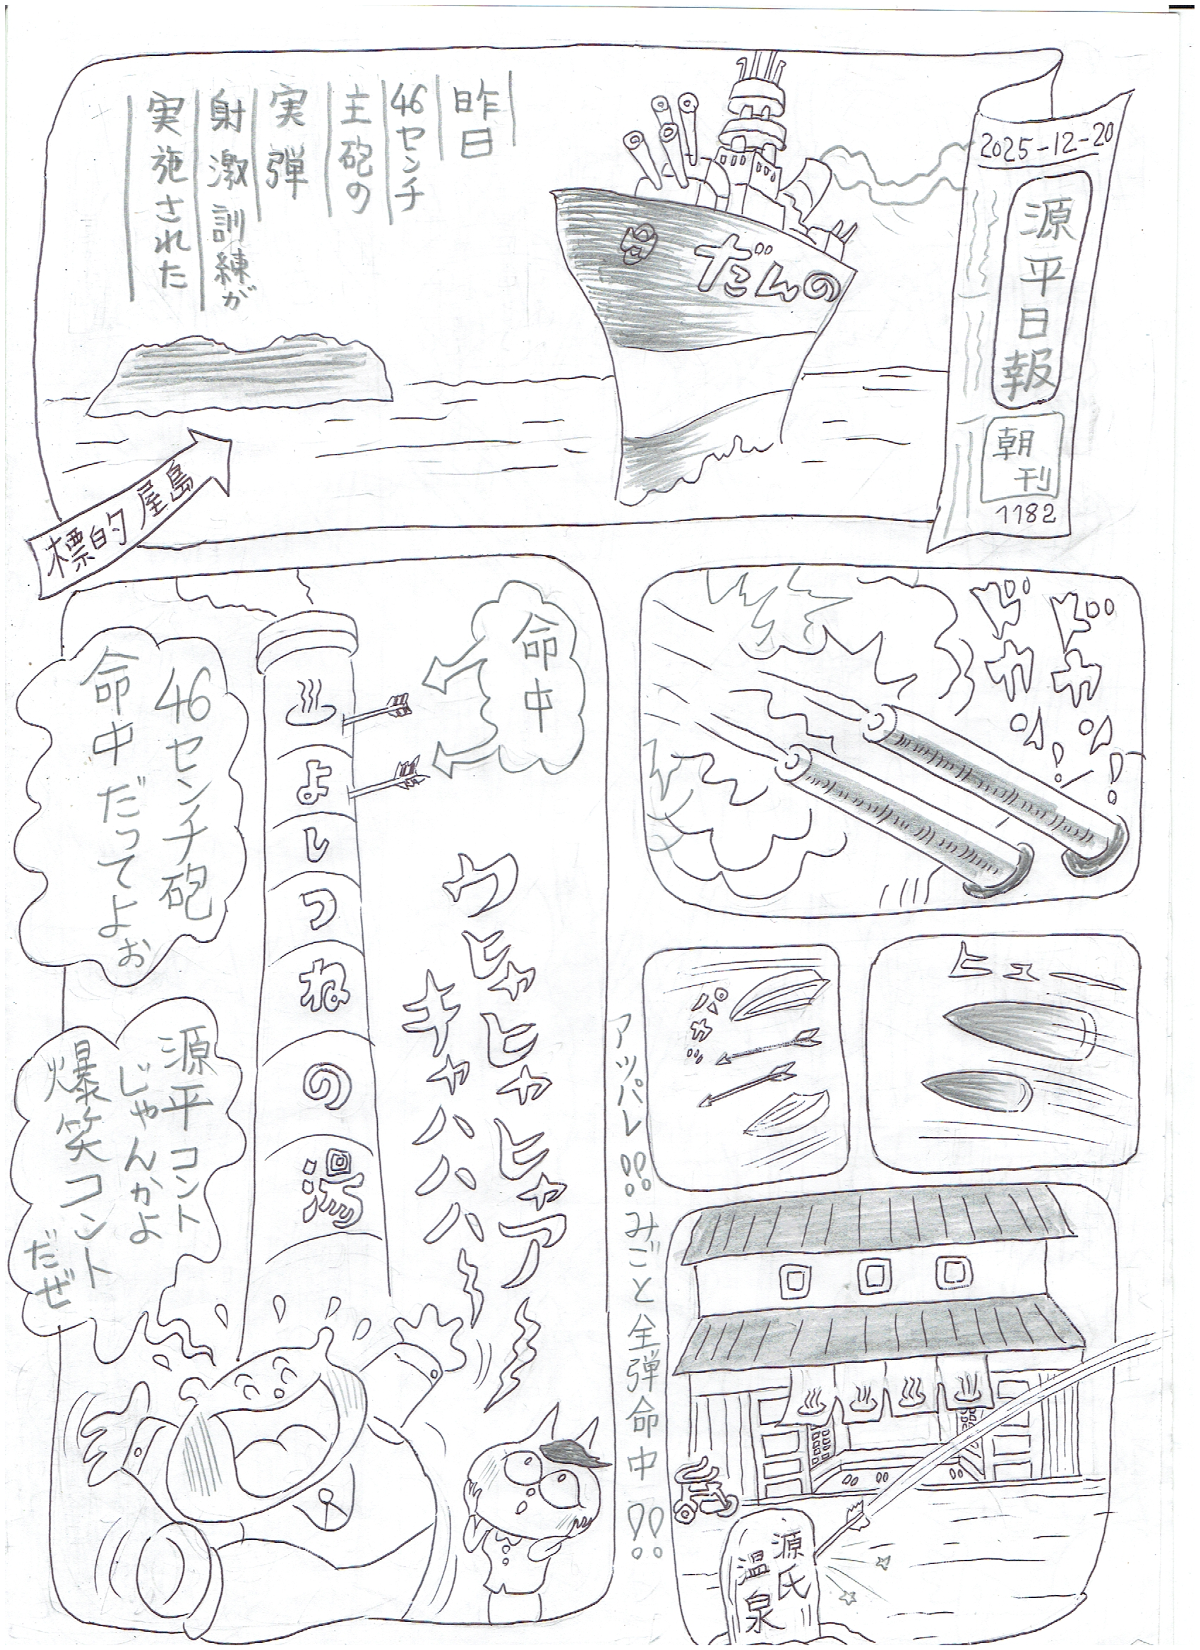 2025-12-20
源平日報
朝刊
1182
だんの
昨日
46センチ
主砲の
実弾
射激訓練が
実施された
標的屋島
ドカン!
ドカン!
ヒュー
パカッ
源氏
温泉
アッパレ!!みごと全弾命中!!
命中
よしつねの湯
46センチ砲
命中だってよぉ
源平コント
じゃんかよ
爆笑コント
だぜ
ウヒャヒャヒャア
キャハハハ